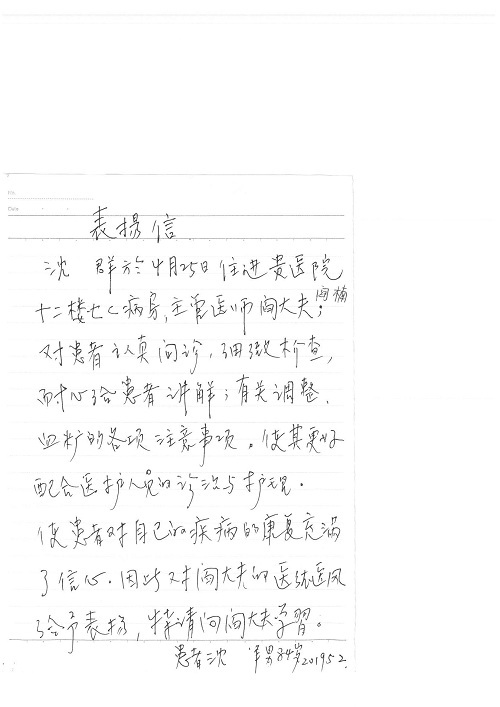 No
Date
表扬信
沈 群于4月25日住进贵医院
十二楼七C病房,主管医师闾大夫;闾楠
对患者认真问诊,细致检查,
耐心给患者讲解;有关调整.
血糖的各项注意事项。使其更好
配合医护人员的诊治与护理.
使患者对自己的疾病的康复充满
了信心.因此对闾大夫的医德医风
给予表扬,特请向闾大夫学习。
患者沈 男84岁2019.5.2.